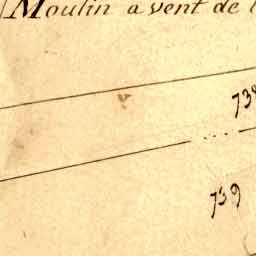 Moulin a vent de
739